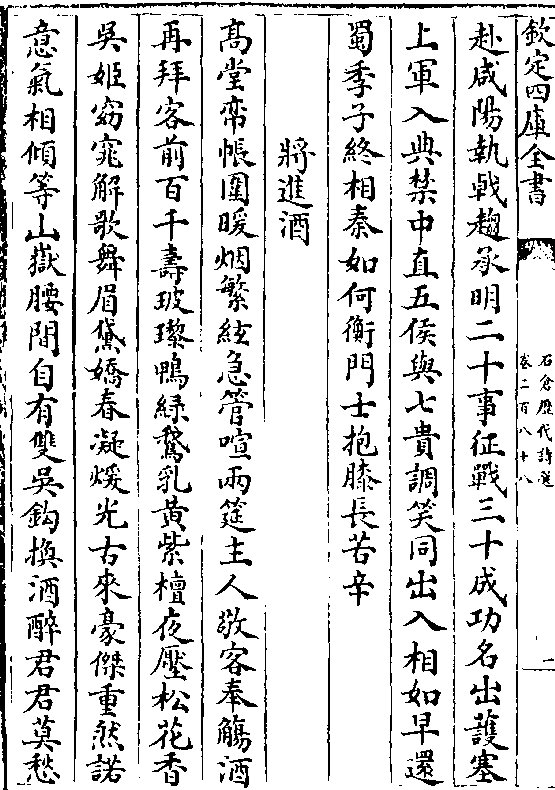 欽定四庫全書
石倉歴代詩選
卷二百八十八
二
赴咸陽執㦸趨承明二十事征戰三十成功名出䕶塞
上軍入典禁中直五侯與七貴調笑同出入相如早還
蜀季子終相秦如何衡門士抱膝長苦辛
將進酒
髙堂帟帳圍暖烟繁絃急管喧兩筵主人敬客奉觴酒
再拜客前百千壽玻瓈鴨綠鵞乳黄紫檀夜壓松花香
吳姬窈窕解歌舞眉黛嬌春凝煖光古來豪傑重然諾
意氣相傾等山嶽腰間自有雙吳鈎換酒醉君君莫愁